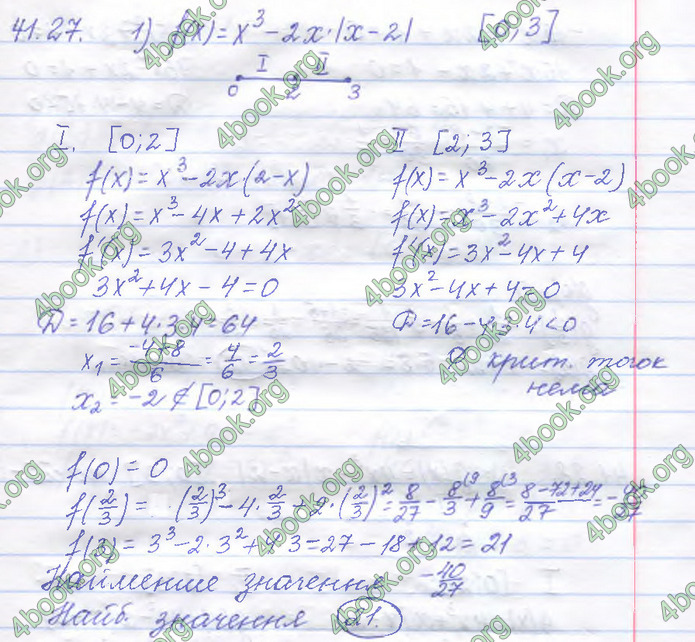 41.27. 1) f(x) = x³ - 2x·|x-2| [0;3]
I II
0 2 3
I. [0;2]
f(x) = x³ - 2x(2-x)
f(x) = x³ - 4x + 2x²
f'(x) = 3x² - 4 + 4x
3x² + 4x - 4 = 0
D = 16 + 4·3·4 = 64
x₁ = (-4+8)/6 = 4/6 = 2/3
x₂ = -2 ∉ [0;2]
II [2;3]
f(x) = x³ - 2x(x-2)
f(x) = x³ - 2x² + 4x
f'(x) = 3x² - 4x + 4
3x² - 4x + 4 = 0
D = 16 - 4·3·4 < 0
крит. точок
нема
f(0) = 0
f(2/3) = (2/3)³ - 4·2/3 + 2·(2/3)² = 8/27 - 8/3 + 8/9 = (8-72+24)/27 = -40/27
f(3) = 3³ - 2·3² + 4·3 = 27 - 18 + 12 = 21
Найменше значення -40/27
Найб. значення 21.
4book.org